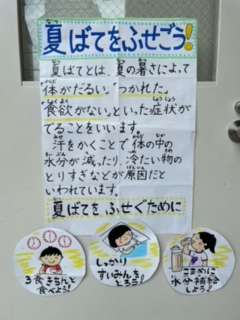 夏ばてをふせごう!
夏ばてとは、夏の暑さによって
「体がだるい。」「つかれた。」
「食欲がない。」といった症状が
でることをいいます。
汗をかくことで体の中の
水分が減ったり、冷たい物の
とりすぎなどが原因だと
いわれています。
夏ばてをふせぐために
3食きちんと
食べよう!
しっかり
すいみんを
とろう!
こまめに
水分補給
しよう!